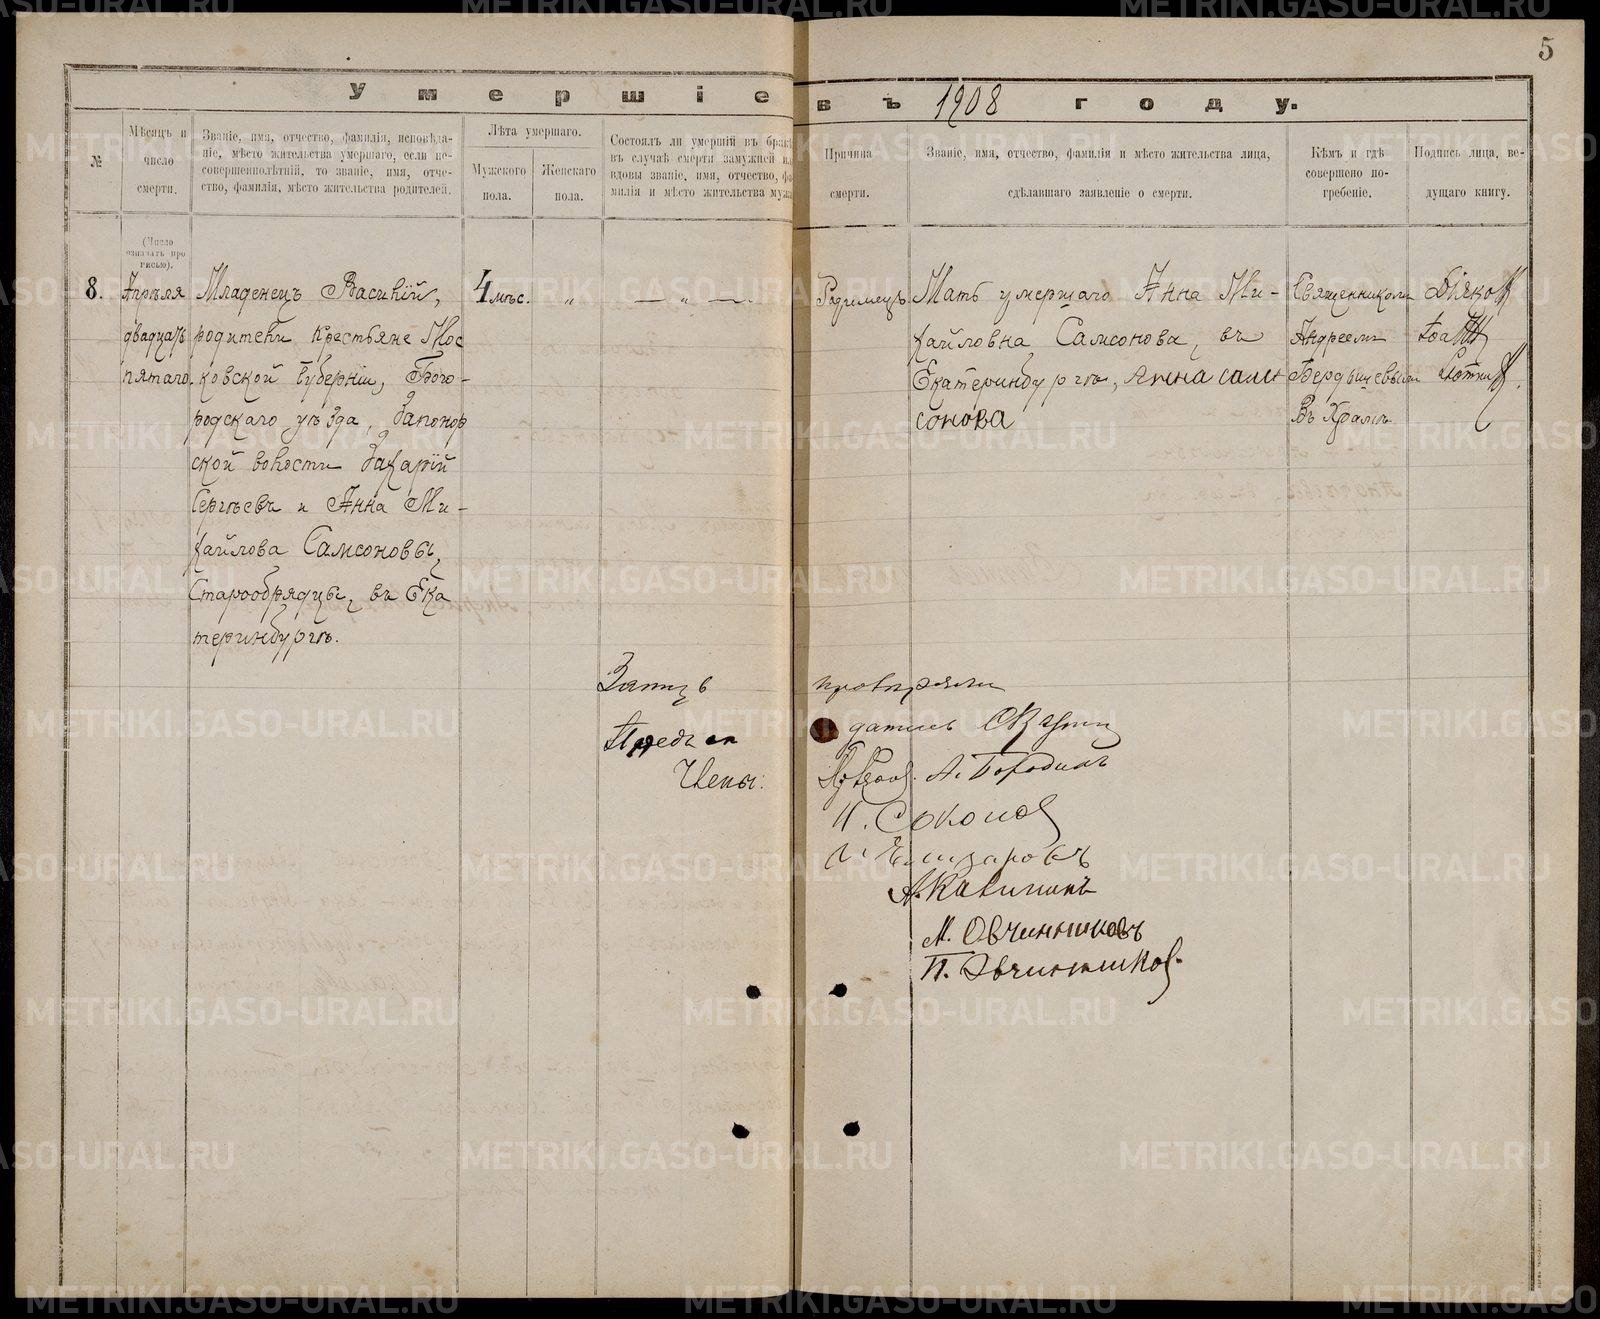 5
Умершіе въ 1908 году.
№
Мѣсяцъ и
число
смерти.
Званіе, имя, отчество, фамилія, исповѣда-
ніе, мѣсто жительства умершаго, если не-
совершеннолѣтній, то званіе, имя, отче-
ство, фамилія, мѣсто жительства родителей.
Лѣта умершаго.
Мужского
пола.
Женскаго
пола.
Состоялъ ли умершій въ бракѣ
въ случаѣ смерти замужней
вдовы званіе, имя, отчество,
милія и мѣсто жительства мужа
Причина
смерти.
Званіе, имя, отчество, фамилія и мѣсто жительства лица,
сдѣлавшаго заявленіе о смерти.
Кѣмъ и гдѣ
совершено по-
гребеніе.
Подпись лица, ве-
дущаго книгу.
(Число
означать про
писью).
8.
Апрѣля
двадцать
пятаго.
Младенецъ Василій,
родители Крестьяне Мос
ковской губерніи, Бого-
родскаго уѣзда, Запонор
ской волости Захарій
Сергѣевъ и Анна Ми-
хайлова Самсоновы,
Старообрядцы, въ Ека
теринбургѣ.
4 мѣс.
„
— „ —.
Родимецъ.
Мать умершаго Анна Ми-
хайловна Самсонова, въ
Екатеринбургѣ, Анна сам
сонова
Священникомъ
Андреемъ
Бердышевымъ
Въ Храмѣ
Запись провѣряли
Предсѣдатель
Члены:
А. Бородинъ
И. Соколов
Елизаровъ
А. Калининъ
М. Овчинниковъ
П. Овчинников.
METRIKI.GASO-URAL.RU